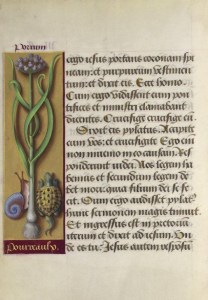 Porrum
ergo iesus portans coronam spi
neam: et purpureum vestimen
tum: et dixit eis. Ecce homo.
Cum ergo vidissent eum pon
tifices et ministri clamabant
dicentes. Crucifige crucifige
eum. Dixit eis pylatus. Accipite
eum vos: et crucifigite. Ego eni
non invenio in eo causam. Res
ponderunt iudei. Nos legem ha
bemus: et secundum legem de
bet mori: quia filium dei se fe
cit. Cum ergo audisset pylatꝰ
hunc sermonem magis timuit.
Et ingressus est in pretorium
iterum: et dixit ad iesum. Un
de es tu: Iesus autem respōsū
Pourreaulx.